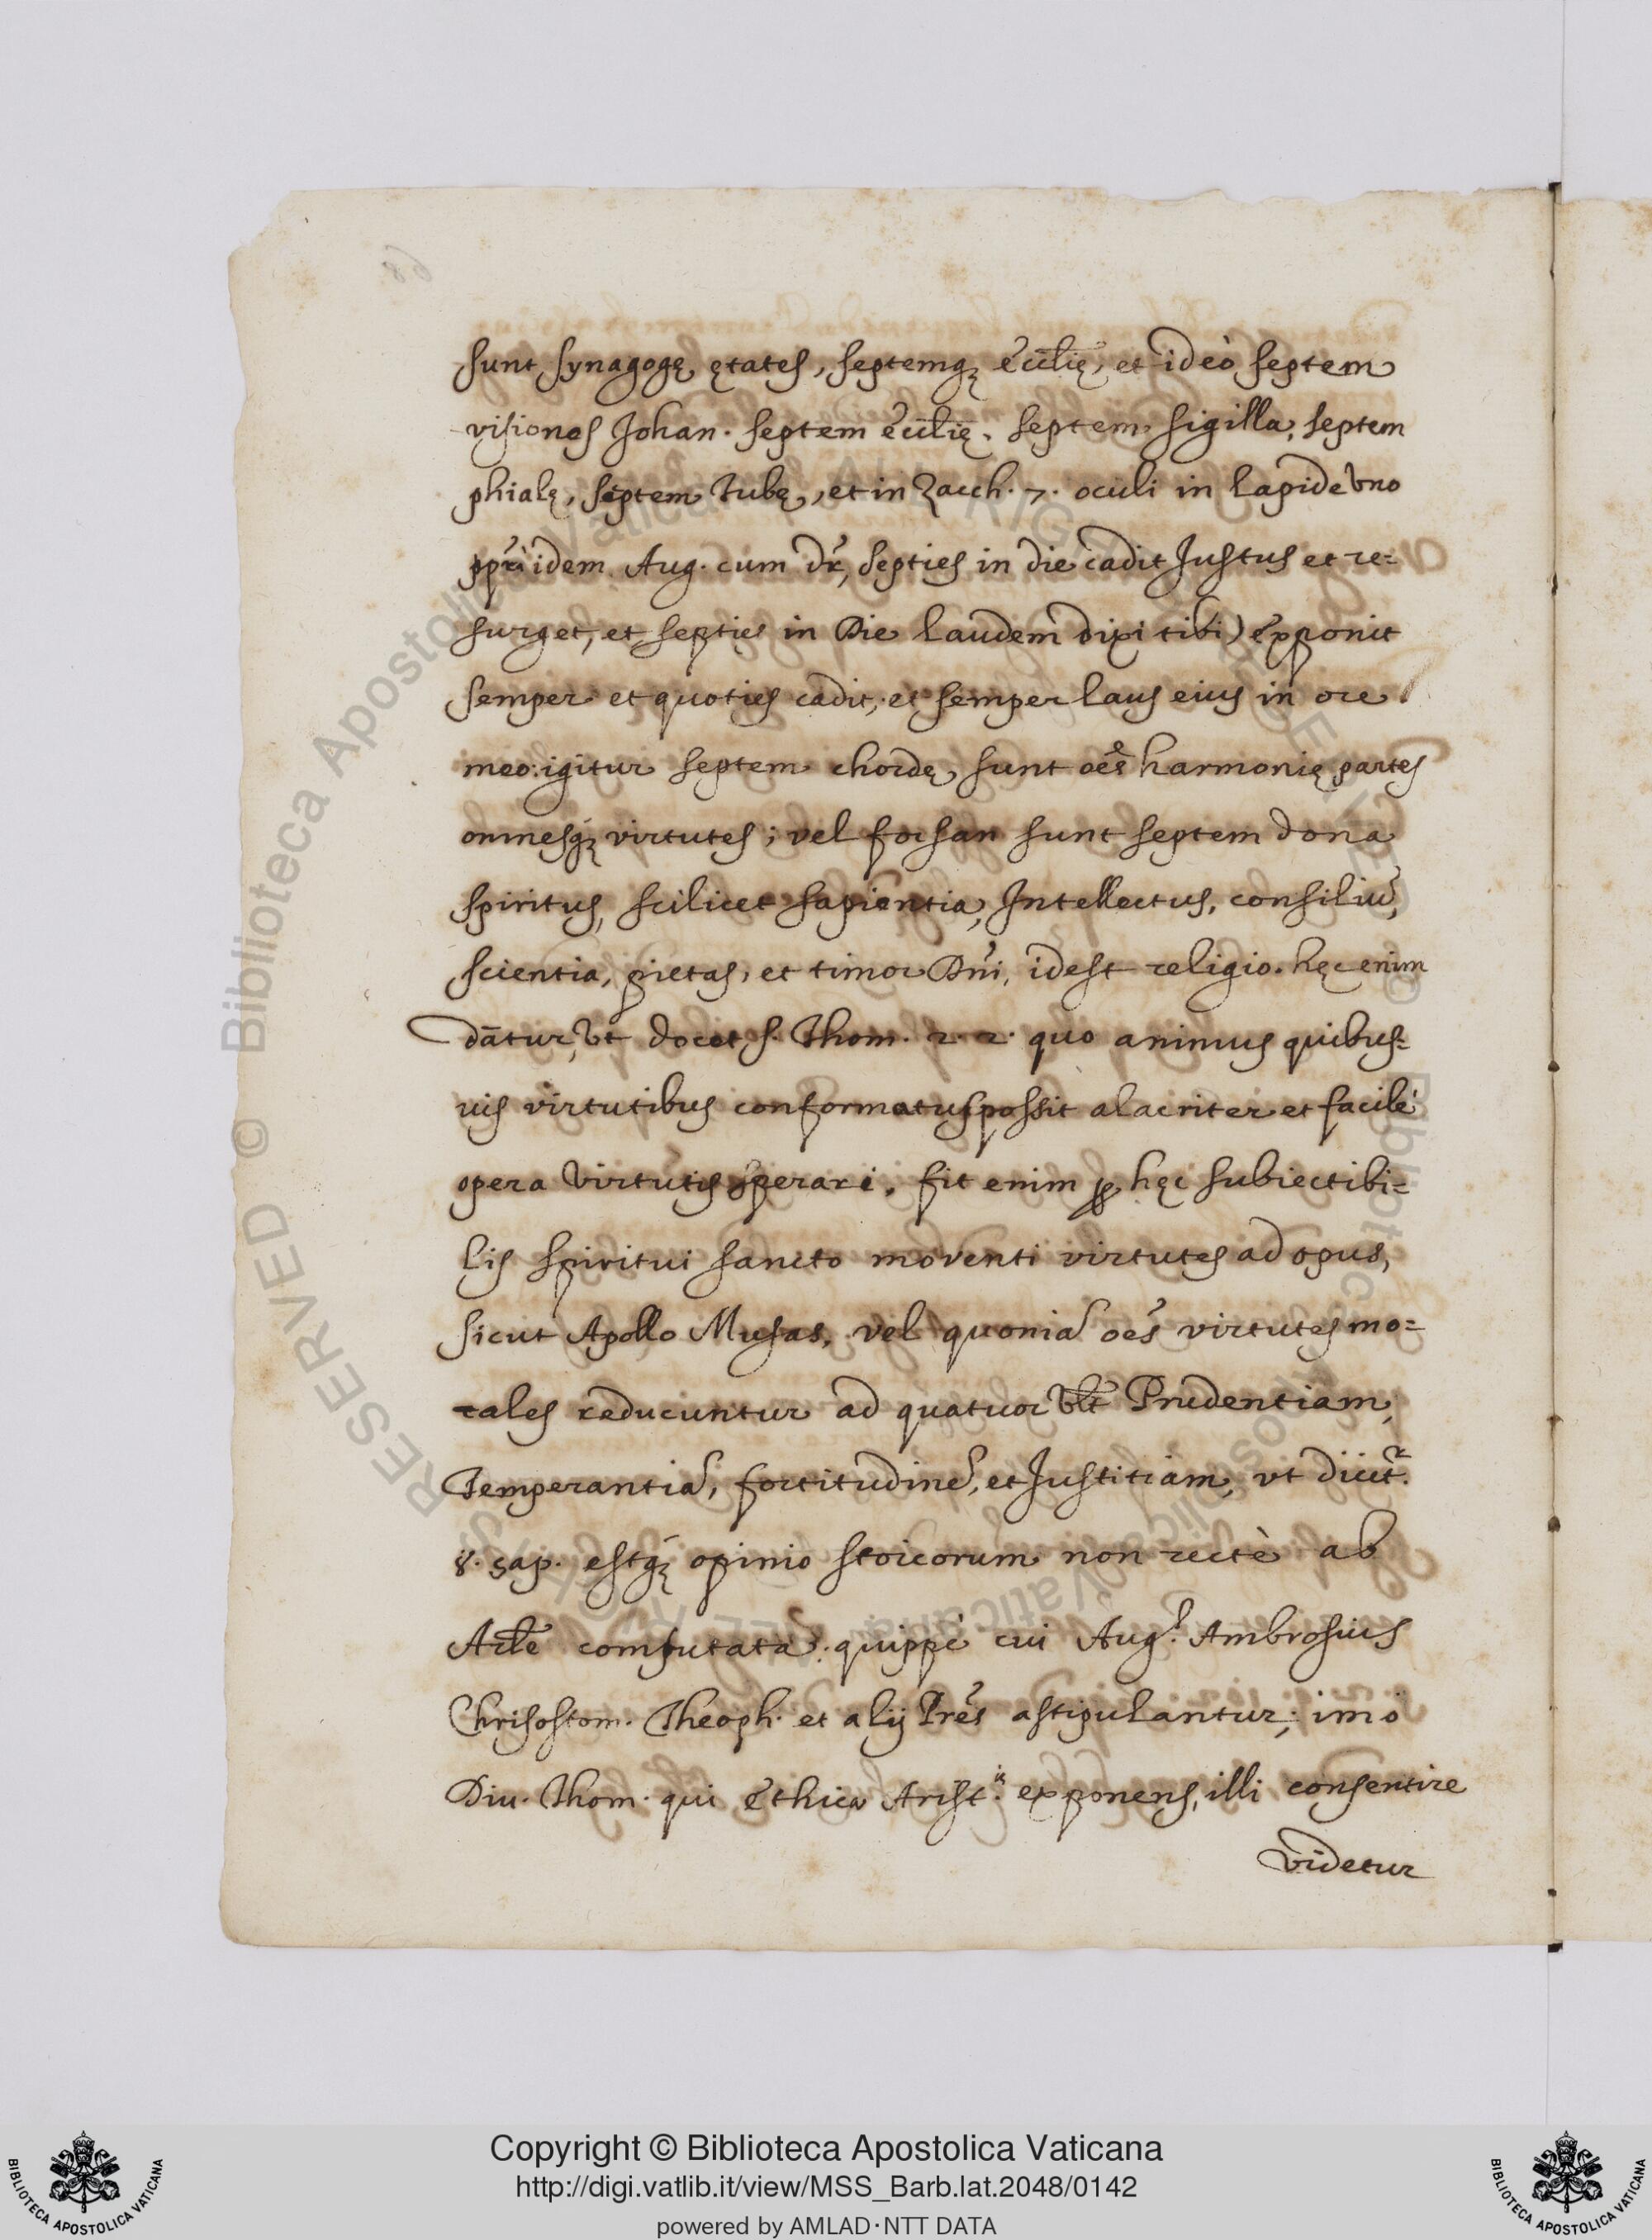 sunt synagogę ętates, septemq3 ecclię, et ideò septem
visiones Johan. septem ecclię. septem sigilla, septem
phialę, septem tubę, et in Zacch. 7. oculi in lapide vno
idem Aug. cum dr̃, septies in die cadit Justus et re=
surget, et septies in Die laudem dixi tibi) exponit
semper et quoties cadit, et semper laus eius in ore
meo: igitur septem chordę sunt oẽs harmonię partes
omnesq3 virtutes; vel forsan sunt septem dona
spiritus, scilicet sapientia, Intellectus, consiliũ,
scientia, pietas, et timor Dñi, idest religio. hęc enim
dãtur, vt docet S. Thom. 2. 2. quo animus quibus=
uis virtutibus conformatus possit alacriter et facilè
opera virtutis operari. fit enim ꝑ hęc subiectibi=
lis spiritui sancto moventi virtutes ad opus,
sicut Apollo Musas, vel quoniã oẽs virtutes mo=
rales reducuntur ad quatuor vl̃t Prudentiam,
Temperantiã, fortitudinẽ, et Justitiam, vt dicit.r
8. sap. estq3 opinio stoicorum non rectè ab
Arl̃e confutata: quippè cui Aug. Ambrosius
Chrisostom. Theoph. et alij Prẽs astipulantur; imò
Diu. Thom. qui ethica Arist.is exponens, illi consentire
videtur
Copyright © Biblioteca Apostolica Vaticana
http://digi.vatlib.it/view/MSS_Barb.lat.2048/0142
powered by AMLAD·NTT DATA
BIBLIOTECA APOSTOLICA VATICANA
BIBLIOTECA APOSTOLICA VATICANA